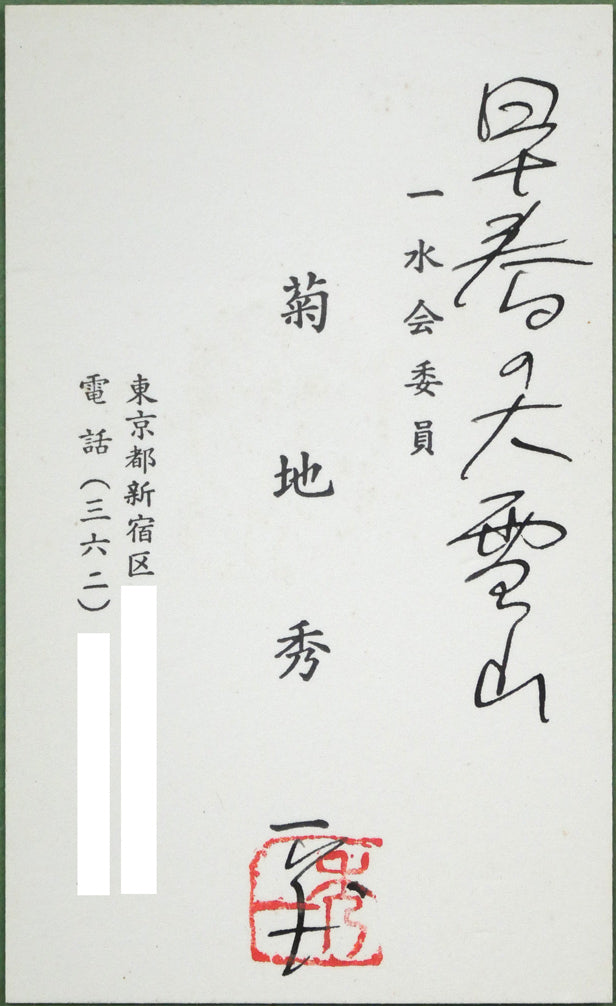 早春の大雪山
一水会委員
菊地秀一
東京都新宿区
電話（三六二）